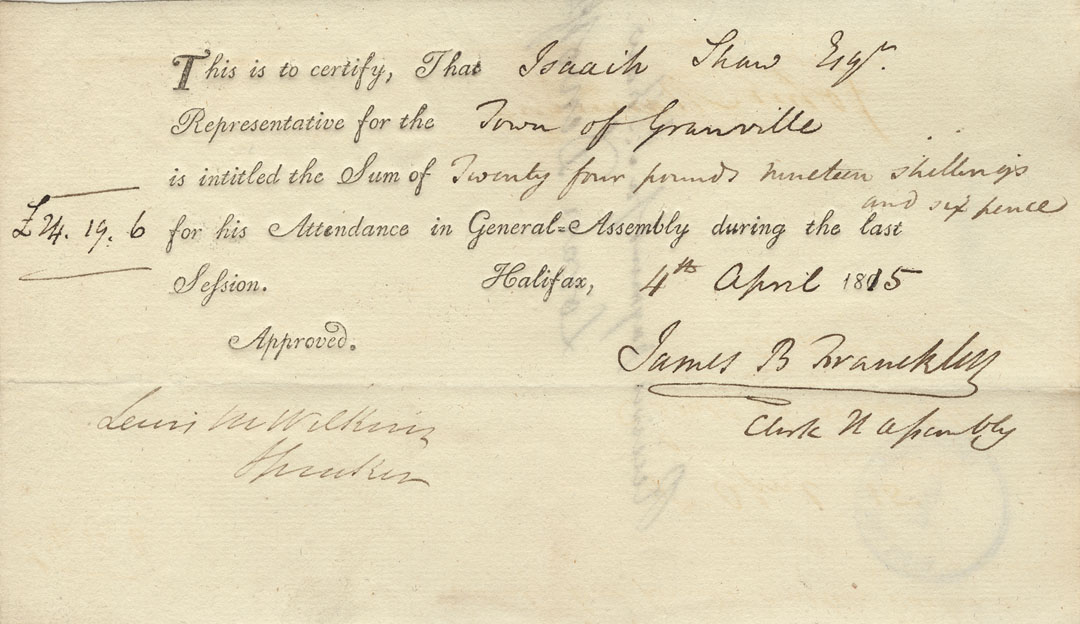 This is to certify, That Isaaih Shaw Esqr.
Representative for the Town of Granville
is intitled the Sum of Twenty four pounds nineteen shillings
and six pence
£24. 19. 6 for his Attendance in General=Assembly during the last
Session. Halifax, 4th April 1815
Approved.
James B Francklin
Clerk H Assembly
Lewis M Wilkins
Speaker